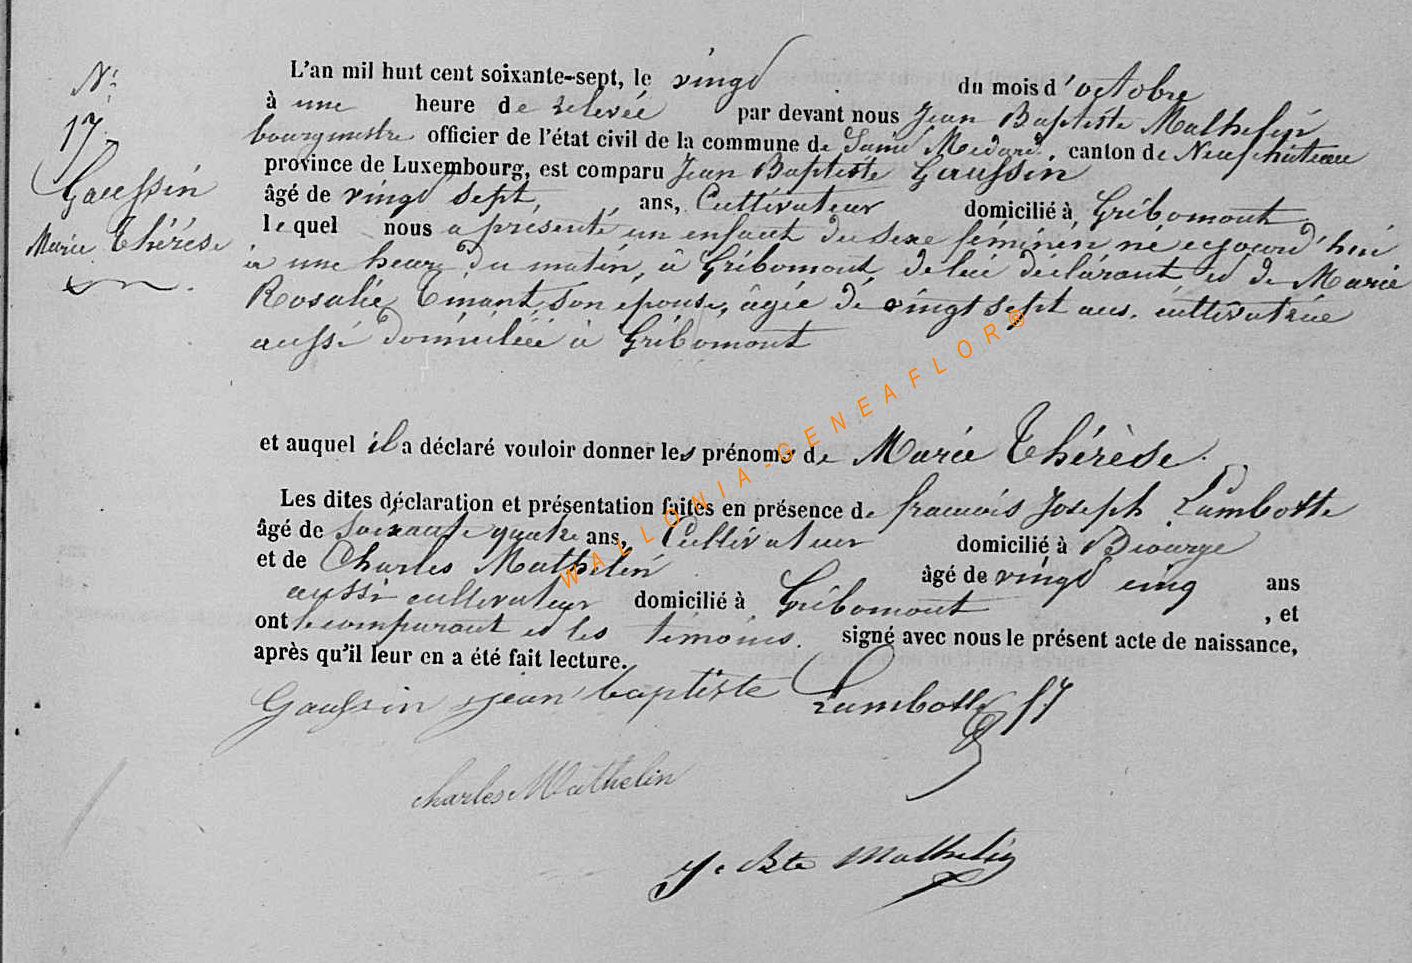 N°
17
Gaussin
Marie Thérèse
L'an mil huit cent soixante-sept, le vingt du mois d'octobre
à une heure de relevée par devant nous Jean Baptiste Mathelin
bourgmestre officier de l'état civil de la commune de Saint Médard, canton de Neufchâteau
province de Luxembourg, est comparu Jean Baptiste Gaussin
âgé de vingt sept, ans, Cultivateur domicilié à Gribomont
lequel nous a présenté un enfant du sexe féminin né aujourd'hui
à une heure du matin, à Gribomont, de lui déclarant, et de Marie
Rosalie Emant, son épouse, âgée de vingt sept ans, cultivatrice
aussi domiciliée à Gribomont
et auquel il a déclaré vouloir donner les prénoms de Marie Thérèse.
Les dites déclaration et présentation faites en présence de francois Joseph Lambotte
âgé de soixante quatre ans, Cultivateur domicilié à Biourge
et de Charles Mathelin âgé de vingt cinq ans
aussi cultivateur domicilié à Gribomont, et
ont le comparant et les témoins. signé avec nous le présent acte de naissance,
après qu'il leur en a été fait lecture.
Gaussin jean baptiste Lambotte f.j
charles Mathelin
J. Bte Mathelin
WALLONIA-GENEAFLOR®